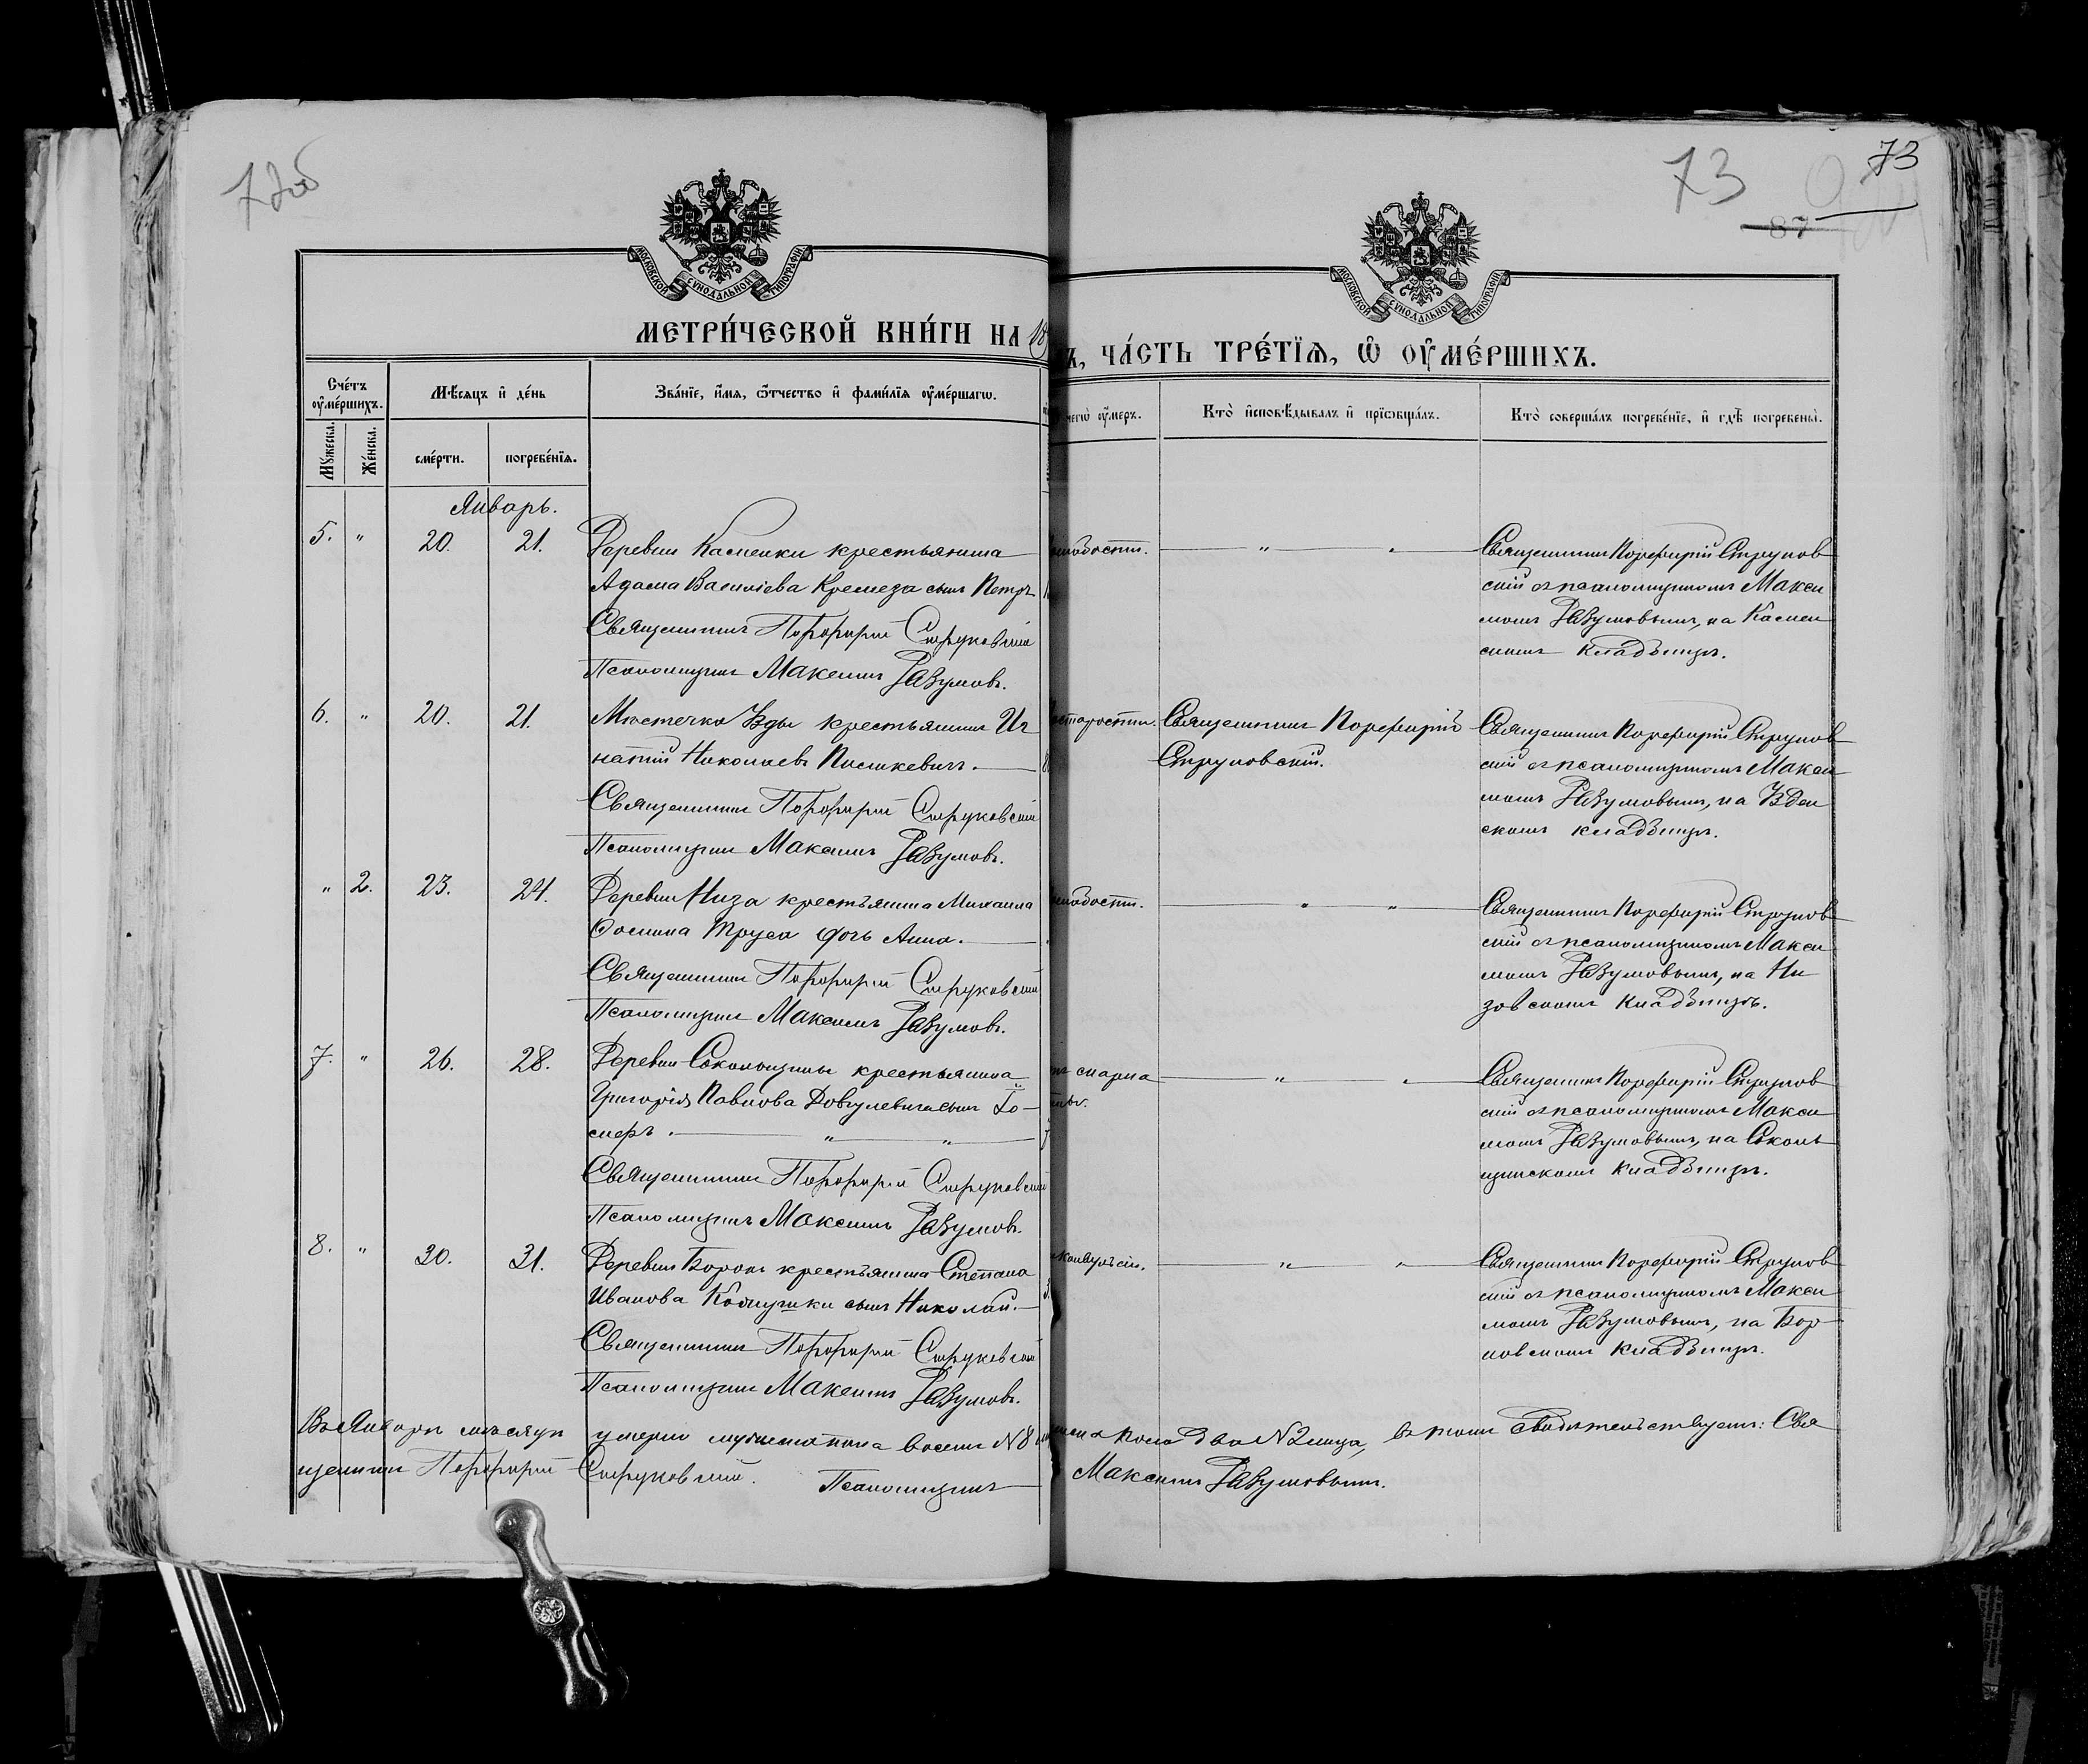 72об
73
73
87
МОСКОВСКОЙ СѴНОДАЛЬНОЙ ТИПОГРАФІИ
МОСКОВСКОЙ СѴНОДАЛЬНОЙ ТИПОГРАФІИ
МЕТРИ́ЧЕСКОЙ КНИ́ГИ НА 18
Ъ, ЧА́СТЬ ТРЕ́ТЇѦ, Ѡ҆ ОУ҆МЕ́РШИХЪ.
Сче́тъ оу҆ме́ршихъ.
Мꙋ́жеска.
Же́нска.
Мѣ́сѧцъ и҆ де́нь
сме́рти.
погребе́нїѧ.
Зва́нїе, и҆́мѧ, ѻ҆́тчество и҆ фами́лїѧ оу҆ме́ршагѡ.
чегѡ̀ оу҆́меръ.
Кто̀ и҆сповѣ́дывалъ и҆ прїѡбща́лъ.
Кто̀ соверша́лъ погребе́нїе, и҆ гдѣ̀ погребены̀.
Январь.
5. " 20. 21. Деревни Каменки крестьянина
Адама Василіева Кремеза сынъ Петръ
Священникъ Порфирій Струковскій
Псаломщикъ Максимъ Разумовъ.
молодости. " "
Священникъ Порфирій Струков
скій съ псаломщикомъ Макси
момъ Разумовымъ, на Камен
скомъ кладбищѣ.
6. " 20. 21. Мѣстечка Узды крестьянинъ Иг
натій Николаевъ
Священникъ Порфирій Струковскій
Псаломщикъ Максимъ Разумовъ.
старости. Священникъ Порфирій
Струковскій.
Священникъ Порфирій Струков
скій съ псаломщикомъ Макси
момъ Разумовымъ, на Узден
скомъ кладбищѣ.
" 2. 23. 24. Деревни Низа крестьянина Михаила
Осипова Труса дочь Анна.
Священникъ Порфирій Струковскій
Псаломщикъ Максимъ Разумовъ.
молодости. " "
Священникъ Порфирій Струков
скій съ псаломщикомъ Макси
момъ Разумовымъ, на Ни
зовскомъ кладбищѣ.
7. " 26. 28. Деревни Сокольщины крестьянина
Григорія Павлова Довгулевича сынъ Іо
сифъ. " "
Священникъ Порфирій Струковскій
Псаломщикъ Максимъ Разумовъ.
скарла " "
Священникъ Порфирій Струков
скій съ псаломщикомъ Макси
момъ Разумовымъ, на Соколь
щинскомъ кладбищѣ.
8. " 30. 31. Деревни Борокъ крестьянина Степана
Иванова сынъ Николай.
Священникъ Порфирій Струковскій
Псаломщикъ Максимъ Разумовъ.
" "
Священникъ Порфирій Струков
скій съ псаломщикомъ Макси
момъ Разумовымъ, на Бор
ковскомъ кладбищѣ.
Въ Январѣ мѣсяцѣ умерло мужеска пола восемь №8 женска пола два №2 лица, въ томъ свидѣтельствуемъ: Свя
щенникъ Порфирій Струковскій. Псаломщикъ Максимъ Разумовымъ.